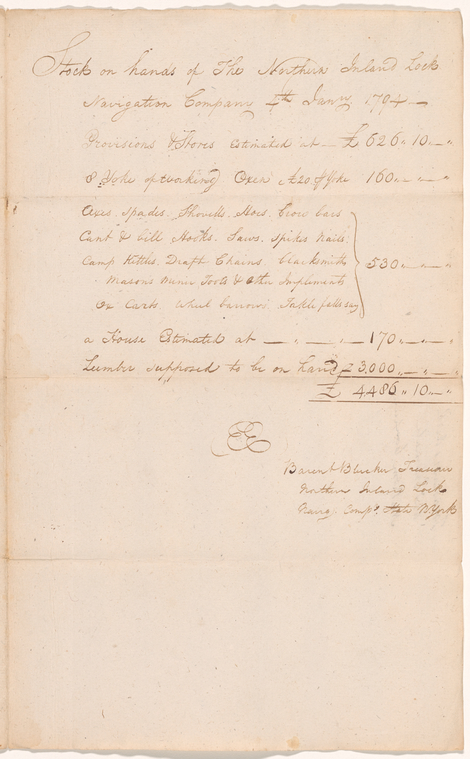 Stock on hands of The Northern Inland Lock
Navigation Company 4th Jany. 1794 —
Provisions & Stores estimated at — £ 626 „ 10 — „
8 Yoke of working Oxen £20. ⅌ Yoke 160 „ — „
Axes. Spades. Shovells. Hoes. Crow bars
Cant & bill Hooks. Saws. Spikes Nails
Camp Kettles. Draft Chains. blacksmiths
Masons Tools & Other Implements
Ox Carts. Wheel barrows. Takle falls &c
530 „ — „
a House Estimated at — „ — „ — 170 „ — „
Lumber supposed to be on hand 3,000 „ — „
£ 4486 „ 10 — „
EE
Barent Bleecker Treasurer
Northern Inland Lock
Navig. Compy. State NYork